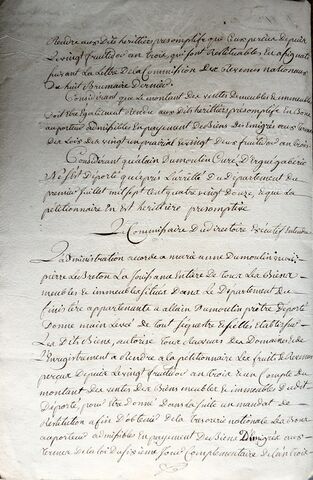 Rendre aux dits herittiers presomptifs que ceux perçus depuis
Le vingt fructidor an trois, qui sont Restituables en assignats
suivant La Lettre de la Commission des Revenus nationaux
du huit Brumaire dernier.
Considérant que le montant des ventes de meubles & immeubles
doit être Egalement rendu aux dits heritiers presomptifs en Bons
au porteur admissibles en payement des Biens des Emigrés aux termes
des Lois des vingt un prairial & vingt deux fructidor an trois
Considérant qu'alain Dumoulin Curé D'ergué gabéric
N'est Déporté qu'après L'arrêté du département du
premier juillet mil sept cent quatre vingt douze, & que la
petitionnaire en Est heritière presomptive
Le Commissaire du directoire Executif Entendu
L'administration accorde a marie anne Dumoulin
pierre Le Breton La jouissance Entiere de tous Les Biens
meubles & immeubles situés Dans Le Departement du
finistère appartenants a allain Dumoulin prêtre Déporté
Donne main Levée de tout sequestre & scellés etablis sur
Les Dits Biens, autorise Tous Receveurs des Domaines & de
L'Enregistrement a rendre a la petitionnaire Les fruits & Revenus
perçus Depuis Le vingt fructidor an trois & un Compte du
montant des ventes des Biens meubles & immeubles du dit
Déporté, pour Etre donné dans La suite un mandat de
Restitution afin D'obtenir de la tresorerie nationale Les Bons
au porteur admissibles En payement des Biens D'émigrés aux
termes de la Loi du sixieme jour complementaire de l'an trois